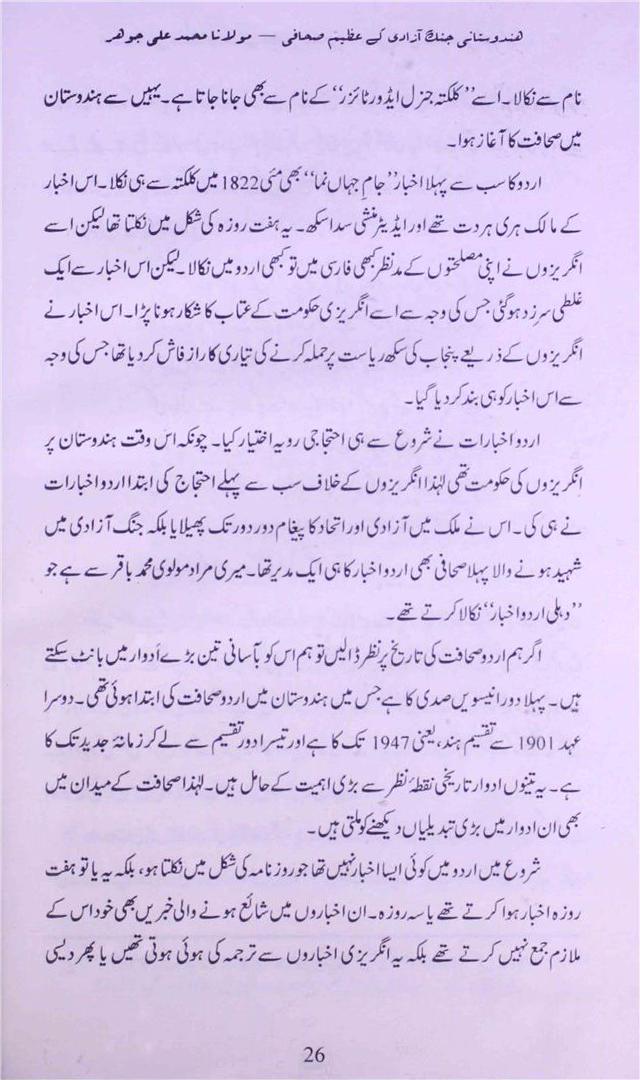 ھندوستانی جنگ آزادی کے عظیم صحافی — مولانا محمد علی جوھر
نام سے نکالا۔ اسے ”کلکتہ جنرل ایڈورٹائزر“ کے نام سے بھی جانا جاتا ہے۔ یہیں سے ہندوستان
میں صحافت کا آغاز ہوا۔
اردو کا سب سے پہلا اخبار ”جامِ جہاں نما“ بھی مئی 1822 میں کلکتہ سے ہی نکلا۔ اس اخبار
کے مالک ہری ہردت تھے اور ایڈیٹر منشی سدا سکھ۔ یہ ہفت روزہ کی شکل میں نکلتا تھا لیکن اسے
انگریزوں نے اپنی مصلحتوں کے مدنظر کبھی فارسی میں تو کبھی اردو میں نکالا۔ لیکن اس اخبار سے ایک
غلطی سرزد ہو گئی جس کی وجہ سے اسے انگریزی حکومت کے عتاب کا شکار ہونا پڑا۔ اس اخبار نے
انگریزوں کے ذریعے پنجاب کی سکھ ریاست پر حملہ کرنے کی تیاری کا راز فاش کر دیا تھا جس کی وجہ
سے اس اخبار کو ہی بند کر دیا گیا۔
اردو اخبارات نے شروع سے ہی احتجاجی رویہ اختیار کیا۔ چونکہ اس وقت ہندوستان پر
انگریزوں کی حکومت تھی لہٰذا انگریزوں کے خلاف سب سے پہلے احتجاج کی ابتدا اردو اخبارات
نے ہی کی۔ اس نے ملک میں آزادی اور اتحاد کا پیغام دور دور تک پھیلایا بلکہ جنگ آزادی میں
شہید ہونے والا پہلا صحافی بھی اردو اخبار کا ہی ایک مدیر تھا۔ میری مراد مولوی محمد باقر سے ہے جو
”دہلی اردو اخبار“ نکالا کرتے تھے۔
اگر ہم اردو صحافت کی تاریخ پر نظر ڈالیں تو ہم اس کو بآسانی تین بڑے اَدوار میں بانٹ سکتے
ہیں۔ پہلا دور انیسویں صدی کا ہے جس میں ہندوستان میں اردو صحافت کی ابتدا ہوئی تھی۔ دوسرا
عہد 1901 سے تقسیم ہند، یعنی 1947 تک کا ہے اور تیسرا دور تقسیم سے لے کر زمانۂ جدید تک کا
ہے۔ یہ تینوں ادوار تاریخی نقطۂ نظر سے بڑی اہمیت کے حامل ہیں۔ لہٰذا صحافت کے میدان میں
بھی ان ادوار میں بڑی تبدیلیاں دیکھنے کو ملتی ہیں۔
شروع میں اردو میں کوئی ایسا اخبار نہیں تھا جو روزنامہ کی شکل میں نکلتا ہو، بلکہ یہ یا تو ہفت
روزہ اخبار ہوا کرتے تھے یا سہ روزہ۔ ان اخباروں میں شائع ہونے والی خبریں بھی خود اس کے
ملازم جمع نہیں کرتے تھے بلکہ یہ انگریزی اخباروں سے ترجمہ کی ہوئی ہوتی تھیں یا پھر دیسی
26